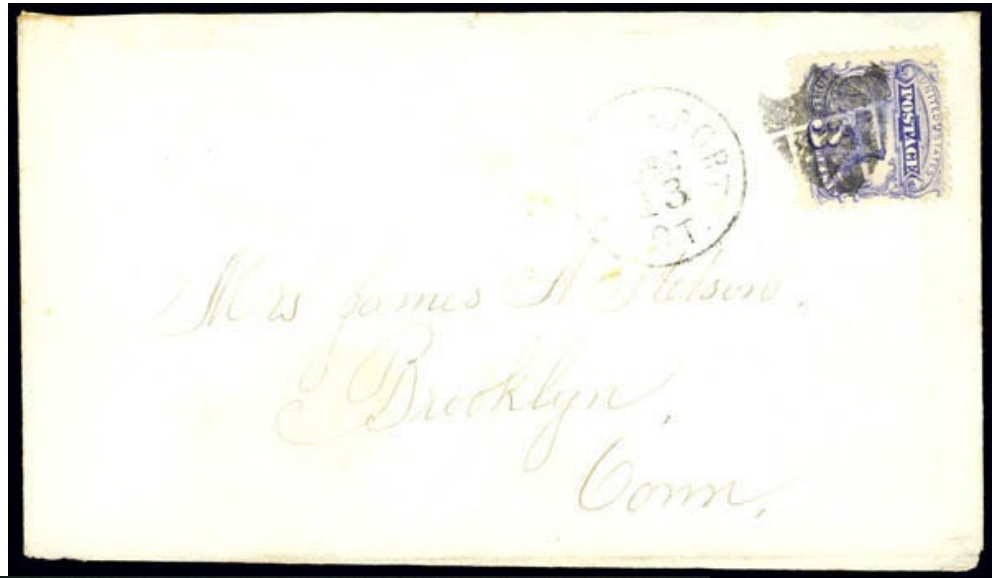 UNITED STATES
POSTAGE
3
13
CT.
Mrs James H Stetson.
Brooklyn,
Conn,